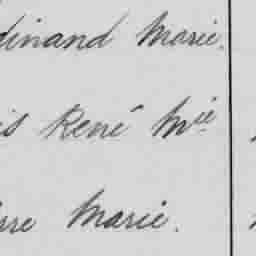 dinand Marie.
is René Mie
rre Marie.